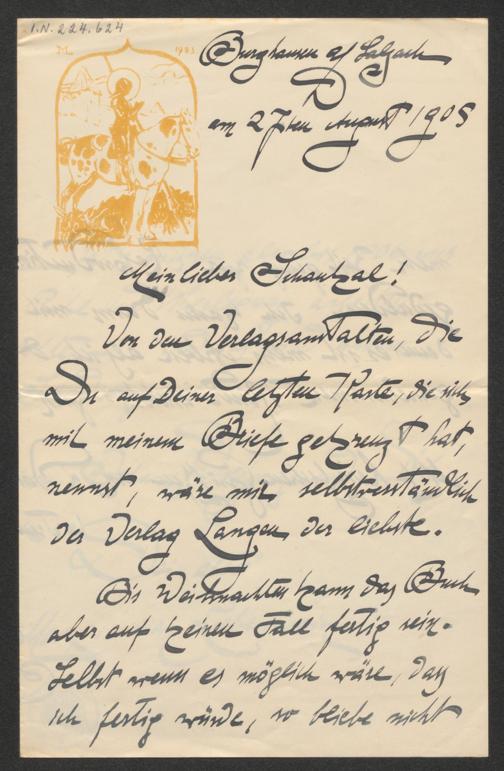 I.N. 224.624
M. 1903
Burghausen a/ Salzach
am 27ten August 1905
Mein lieber Schaukal!
Von den Verlagsanstalten, die
Du auf Deiner letzten Karte, die sich
mit meinem Briefe gekreuzt hat,
nennst, wäre mir selbstverständlich
der Verlag Langen der liebste.
Bis Weihnachten kann das Buch
aber auf keinen Fall fertig sein.
Selbst wenn es möglich wäre, daß
ich fertig würde, so bliebe nicht